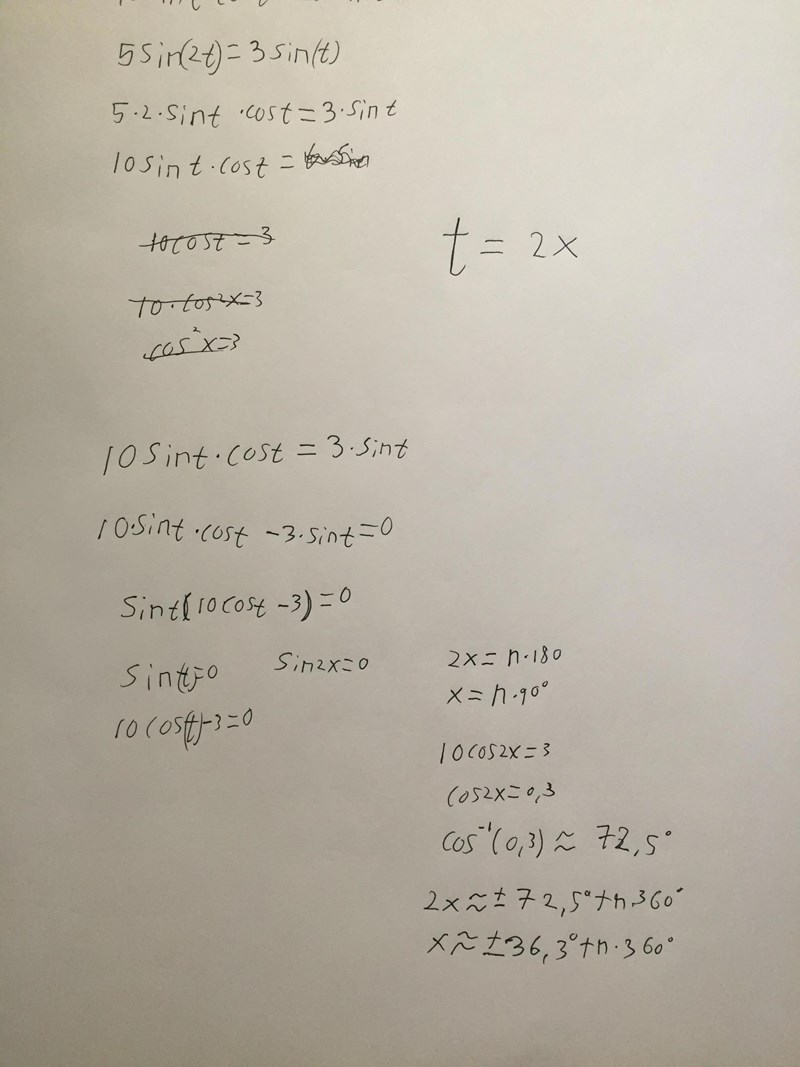 5 sin(2t) = 3 sin(t)
5·2·sint ·cost = 3·sint
10 sint·cost =
10cost = 3
t = 2x
10·cos2x=3
cos²x=3
10 sint·cost = 3·sint
10·sint·cost -3·sint=0
sint(10cost -3)=0
sin(t)=0 sin2x=0
10cos(t)-3=0
2x = n·180
x = n·90°
10cos2x = 3
cos2x=0,3
cos⁻¹(0,3) ≈ 72,5°
2x ≈ ± 72,5° + n360°
x ≈ ±36,3° + n·360°